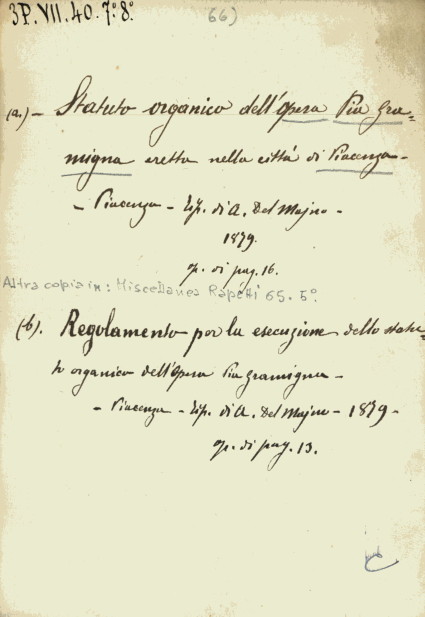 3P.VII.40.7º.8º.
66)
(a.) – Statuto organico dell'Opera Pia Gra=
migna eretta nella città di Piacenza –
– Piacenza – Tip. di A. Del Majno –
1879.
op. di pag. 16.
Altra copia in: Miscellanea Rapetti 65. 5º.
(b). Regolamento per la esecuzione dello statu=
to organico dell'Opera Pia Gramigna –
– Piacenza – Tip. di A. Del Majno – 1879 –
op. di pag. 13.